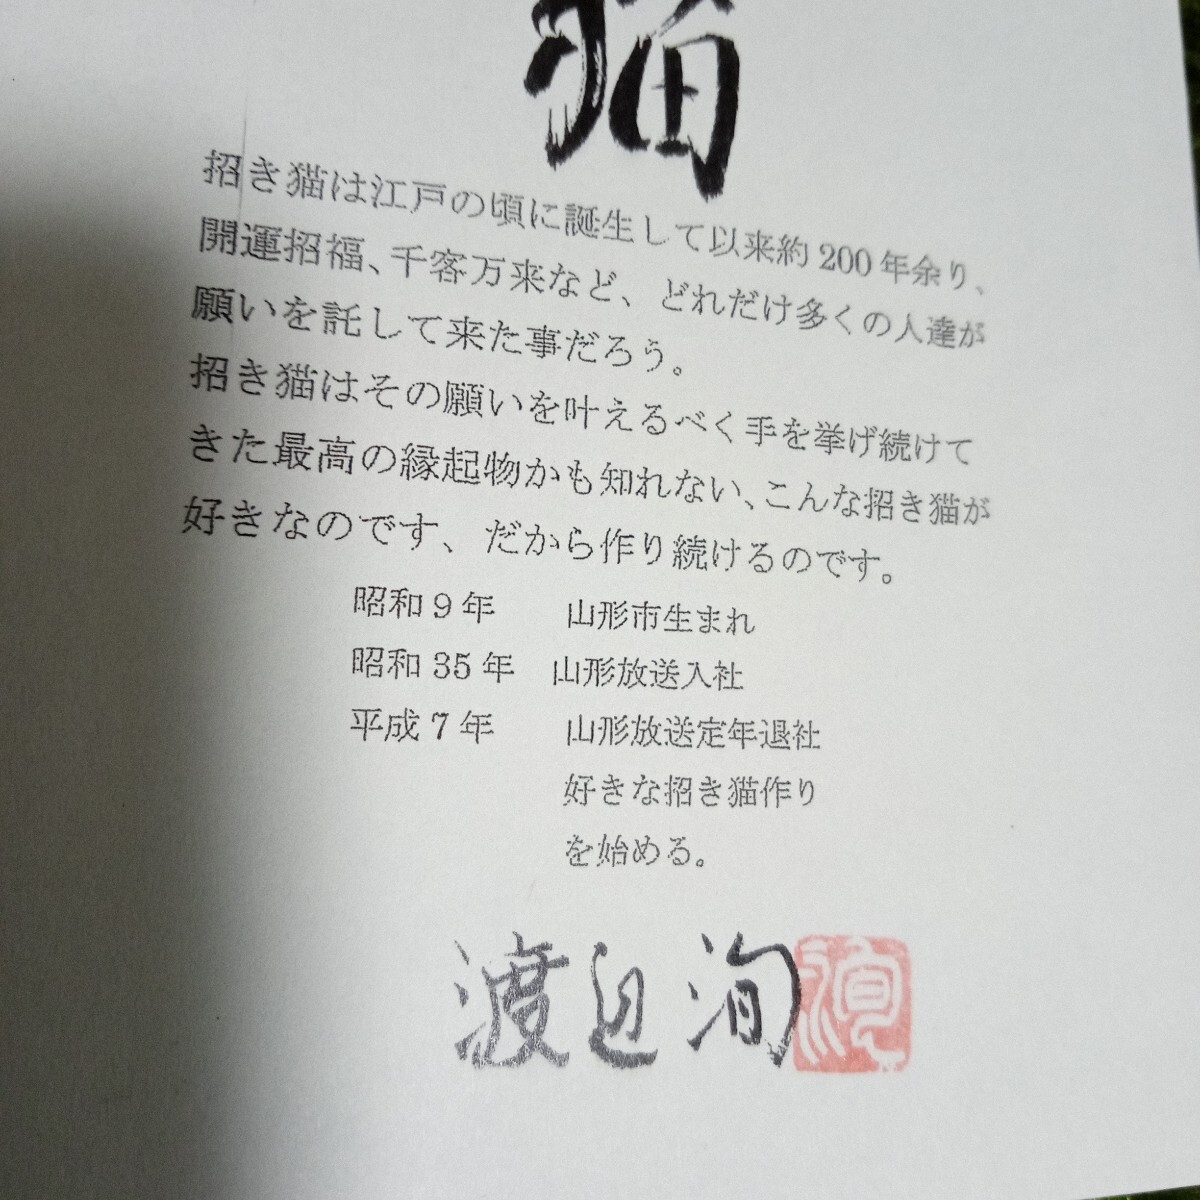 猫
招き猫は江戸の頃に誕生して以来約200年余り、
開運招福、千客万来など、どれだけ多くの人達が
願いを託して来た事だろう。
招き猫はその願いを叶えるべく手を挙げ続けて
きた最高の縁起物かも知れない、こんな招き猫が
好きなのです、だから作り続けるのです。
昭和9年 山形市生まれ
昭和35年 山形放送入社
平成7年 山形放送定年退社
好きな招き猫作り
を始める。
渡辺洵
洵